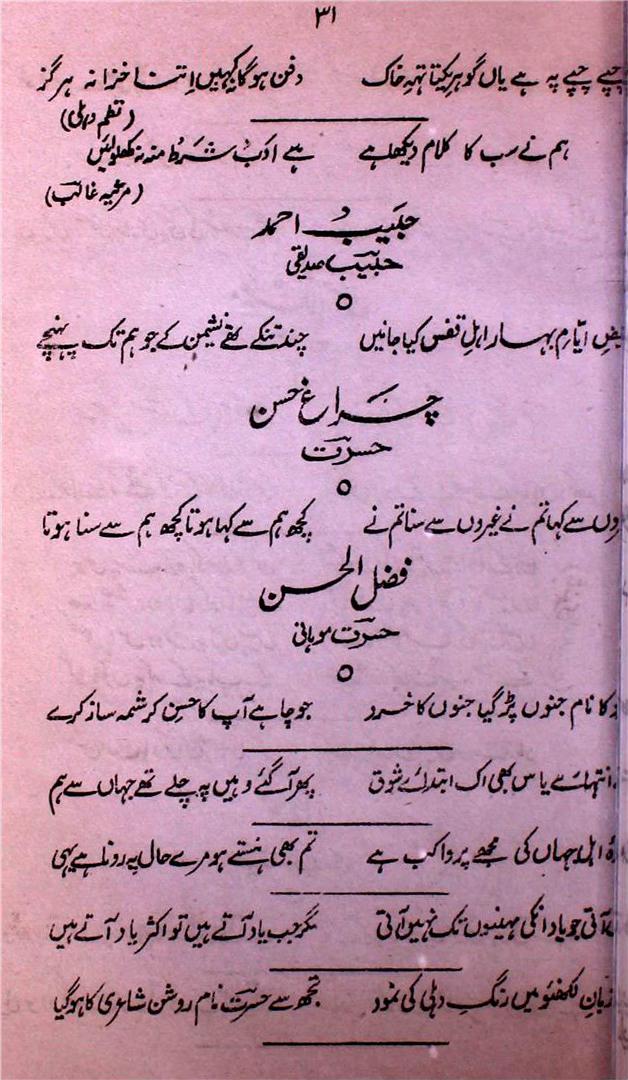 ۳۱
چپے چپے پہ ہے یاں گوہرِ یکتا تہہِ خاک دفن ہوگا کہیں اتنا خزانہ ہرگز
(نظم دہلی)
ہم نے سب کا کلام دیکھا ہے ہے ادب شرط منہ نہ کھلوائیں
(مرثیہ غالب)
حبیب احمد
حبیب صدیقی
فیضِ ایامِ بہار اہلِ قفس کیا جانیں چند تنکے تھے نشیمن کے جو ہم تک پہنچے
چراغ حسن
حسرت
سے کہا تم نے غیروں سے سنا تم نے کچھ ہم سے کہا ہوتا کچھ ہم سے سنا ہوتا
فضل الحسن
حسرت موہانی
کا نام جنوں پڑ گیا جنوں کا خرد جو چاہے آپ کا حسنِ کرشمہ ساز کرے
انتہائے یاس بھی اک ابتدائے شوق پھر آ گئے وہیں پہ چلے تھے جہاں سے ہم
اہلِ جہاں کی مجھے پروا کب ہے تم بھی ہنستے ہو مرے حال پہ رونا ہے یہی
آتی جو یاد انکی مہینوں تک نہیں آتی مگر جب یاد آتے ہیں تو اکثر یاد آتے ہیں
زبانِ لکھنؤ میں رنگِ دہلی کی نمود تجھ سے حسرت نام روشن شاعری کا ہو گیا